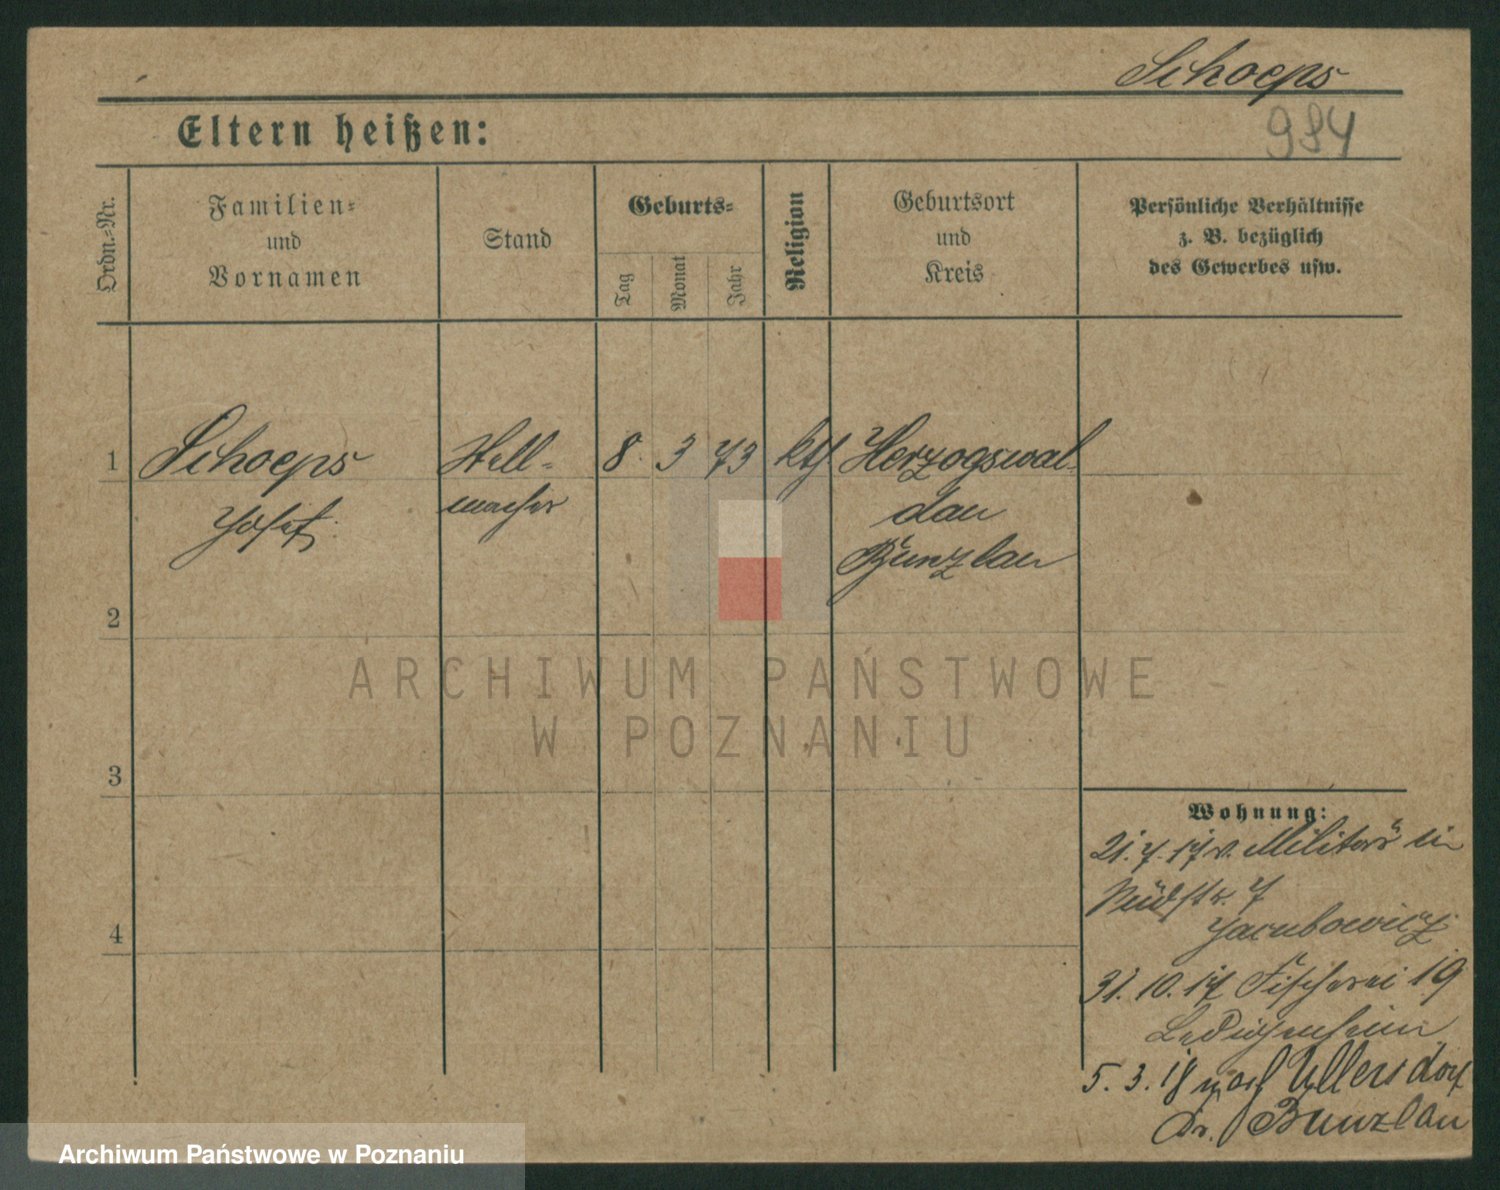 Schoeps
Eltern heißen:
984
Ordn.=Nr.
Familien=
und
Vornamen
Stand
Geburts=
Tag
Monat
Jahr
Religion
Geburtsort
und
Kreis
Persönliche Verhältnisse
z. B. bezüglich
des Gewerbes usw.
1
Schoeps
Josef.
Stell=
macher
8. 3 73
kth.
Herzogswal=
dau
Bunzlau
2
3
4
Wohnung:
21.7.17 v. Militär in
7
Jacubowicz
31.10.17 Fischerei 19
Ledigenheim
5.3.18 nach Ullersdorf
Kr. Bunzlau
ARCHIWUM PAŃSTWOWE
W POZNANIU
Archiwum Państwowe w Poznaniu